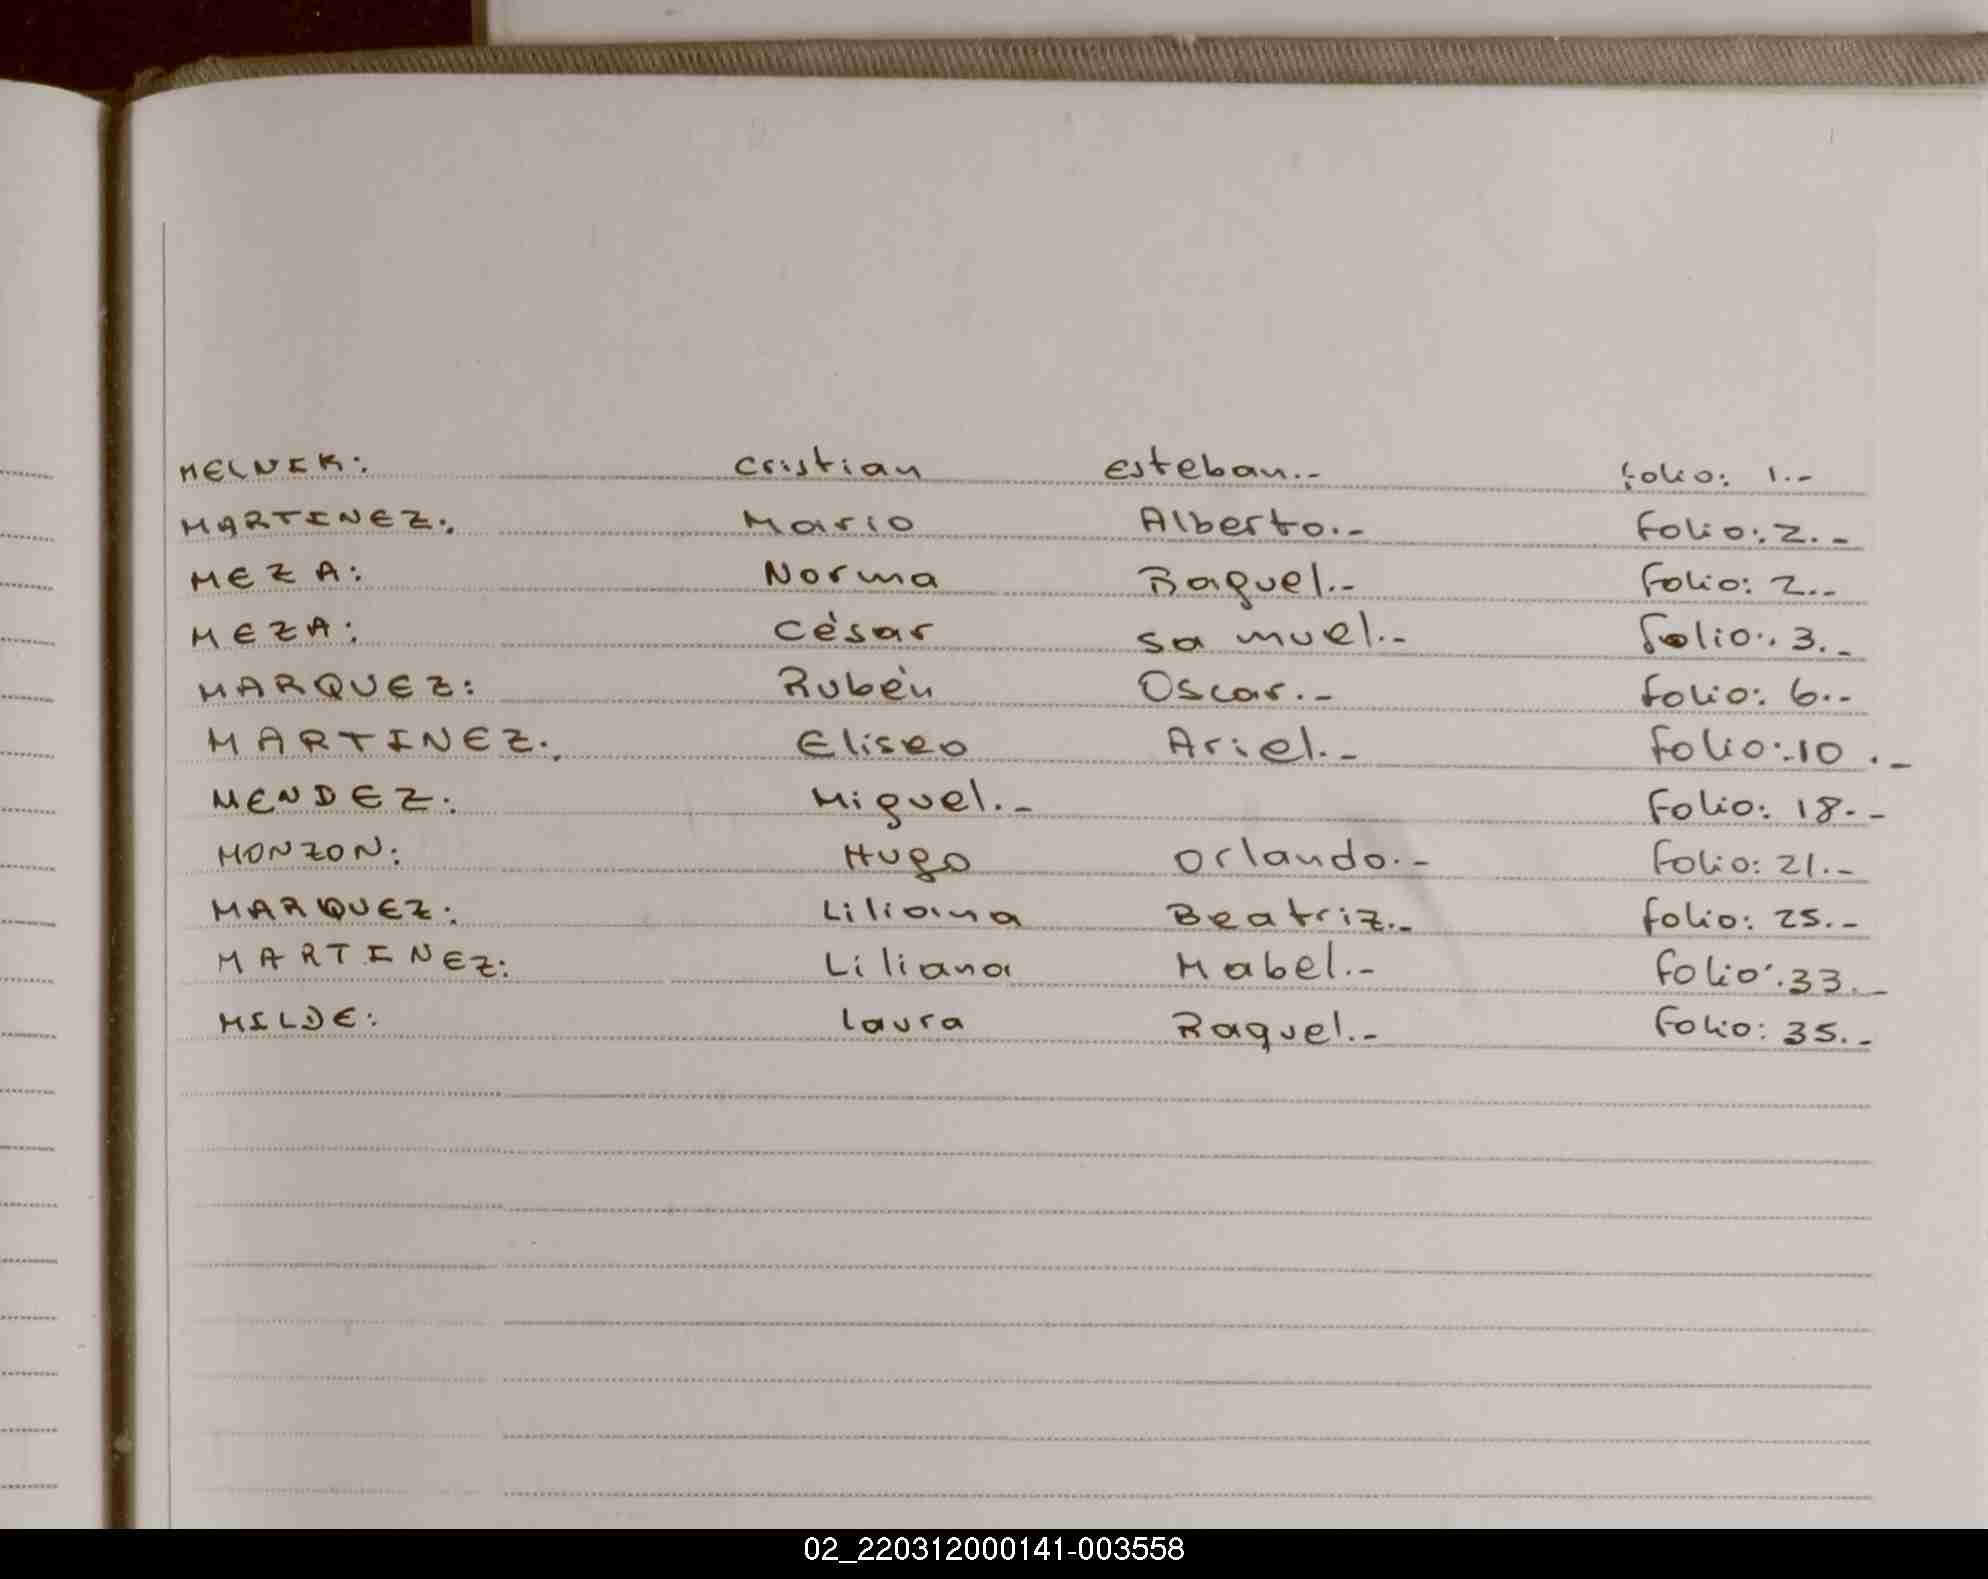 MELNIK: Cristian Esteban.- folio: 1.-
MARTINEZ: Mario Alberto.- Folio: 2.-
MEZA: Norma Raquel.- Folio: 2.-
MEZA: César Samuel.- Folio: 3.-
MARQUEZ: Rubén Oscar.- Folio: 6.-
MARTINEZ: Eliseo Ariel.- Folio: 10.-
MENDEZ: Miguel.- Folio: 18.-
MONZON: Hugo Orlando.- Folio: 21.-
MARQUEZ: Liliana Beatriz.- folio: 25.-
MARTINEZ: Liliana Mabel.- Folio: 33.-
MILDE: Laura Raquel.- Folio: 35.-
02_220312000141-003558